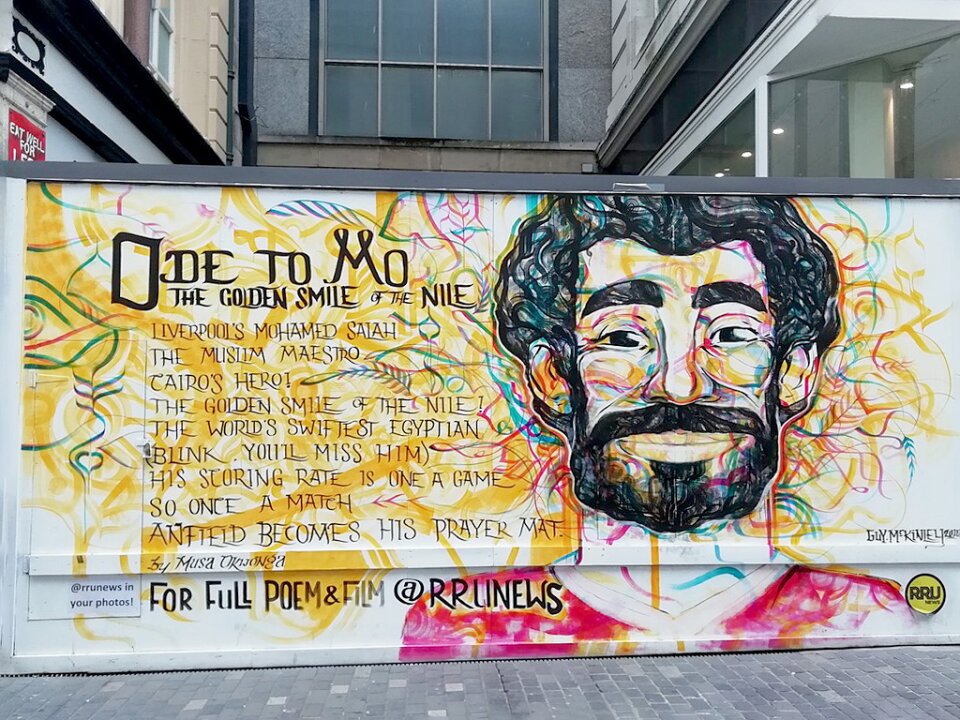 EAT WELL
FOR
ODE TO MO
THE GOLDEN SMILE OF THE NILE
LIVERPOOL'S MOHAMED SALAH
THE MUSLIM MAESTRO
CAIRO'S HERO!
THE GOLDEN SMILE OF THE NILE!
THE WORLD'S SWIFTEST EGYPTIAN
(BLINK, YOU'LL MISS HIM)
HIS SCORING RATE IS ONE A GAME
SO ONCE A MATCH
ANFIELD BECOMES HIS PRAYER MAT.
by MUSA OKWONGA
GUY.MCKINLEY
@rrunews in
your photos!
FOR FULL POEM & FILM @RRUNEWS
RRU
NEWS